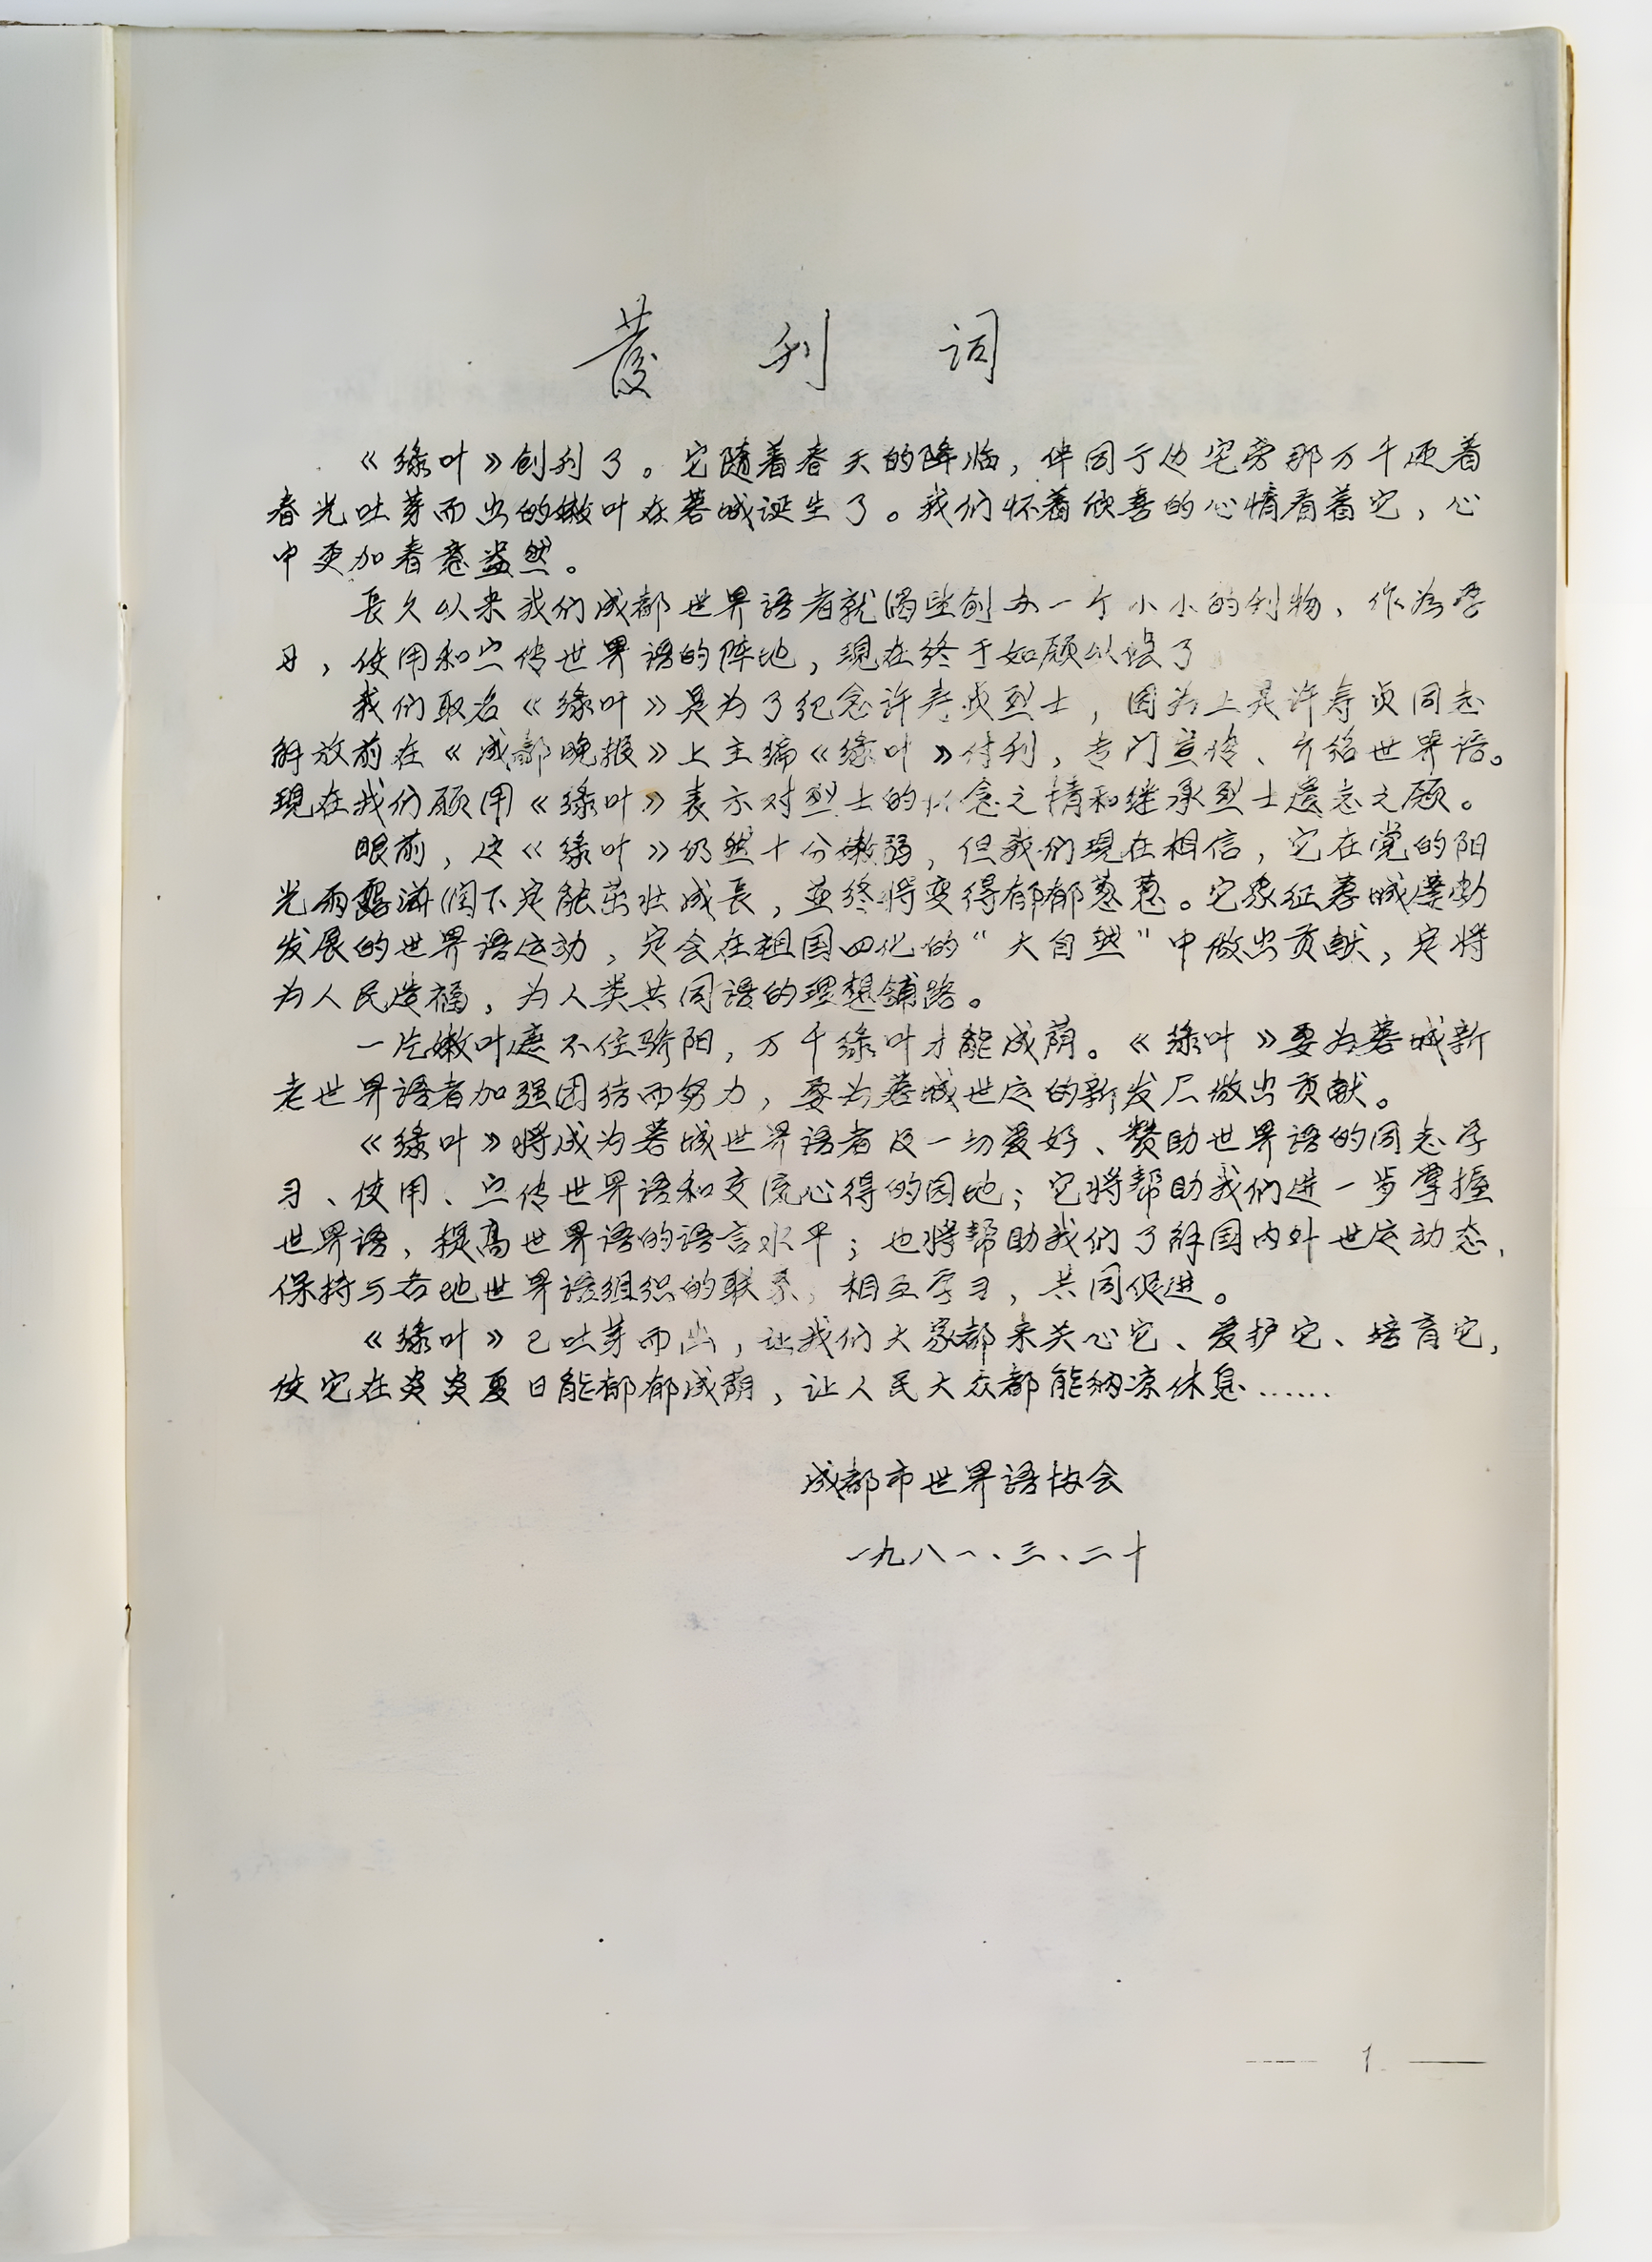 發刊词
《绿叶》创刊了。它随着春天的降临，伴同于边宅旁那万千迎着
春光吐芽而出的嫩叶在蓉城诞生了。我们怀着欣喜的心情看着它，心
中更加春意盎然。
長久以来我们成都世界语者就渴望创办一个小小的刊物，作为学
习，使用和宣传世界语的阵地，現在终于如愿以偿了
我们取名《绿叶》是为了纪念许寿真烈士，因为上是许寿贞同志
解放前在《成都晚报》上主编《绿叶》付刊，专门宣传、介绍世界语。
現在我们愿用《绿叶》表示对烈士的怀念之情和继承烈士遗志之愿。
眼前，这《绿叶》仍然十分嫩弱，但我们現在相信，它在党的阳
光雨露滋润下定能茁壮成長，並终将变得郁郁葱葱。它象征蓉城蓬勃
发展的世界语运动，定会在祖国四化的“大自然”中做出贡献，定将
为人民造福，为人类共同语的理想铺路。
一片嫩叶遮不住骄阳，万千绿叶才能成荫。《绿叶》要为蓉城新
老世界语者加强团结而努力，要为蓉城世运的新发尸做出贡献。
《绿叶》将成为蓉城世界语者及一切爱好、赞助世界语的同志学
习、使用、宣传世界语和交流心得的园地；它将帮助我们进一步掌握
世界语，提高世界语的语言水平；也将帮助我们了解国内外世运动态，
保持与各地世界语组织的联系，相互学习，共同促进。
《绿叶》已吐芽而出，让我们大家都来关心它、爱护它、培育它，
使它在炎炎夏日能郁郁成荫，让人民大众都能纳凉休息……
成都市世界语协会
一九八一、三、二十
1